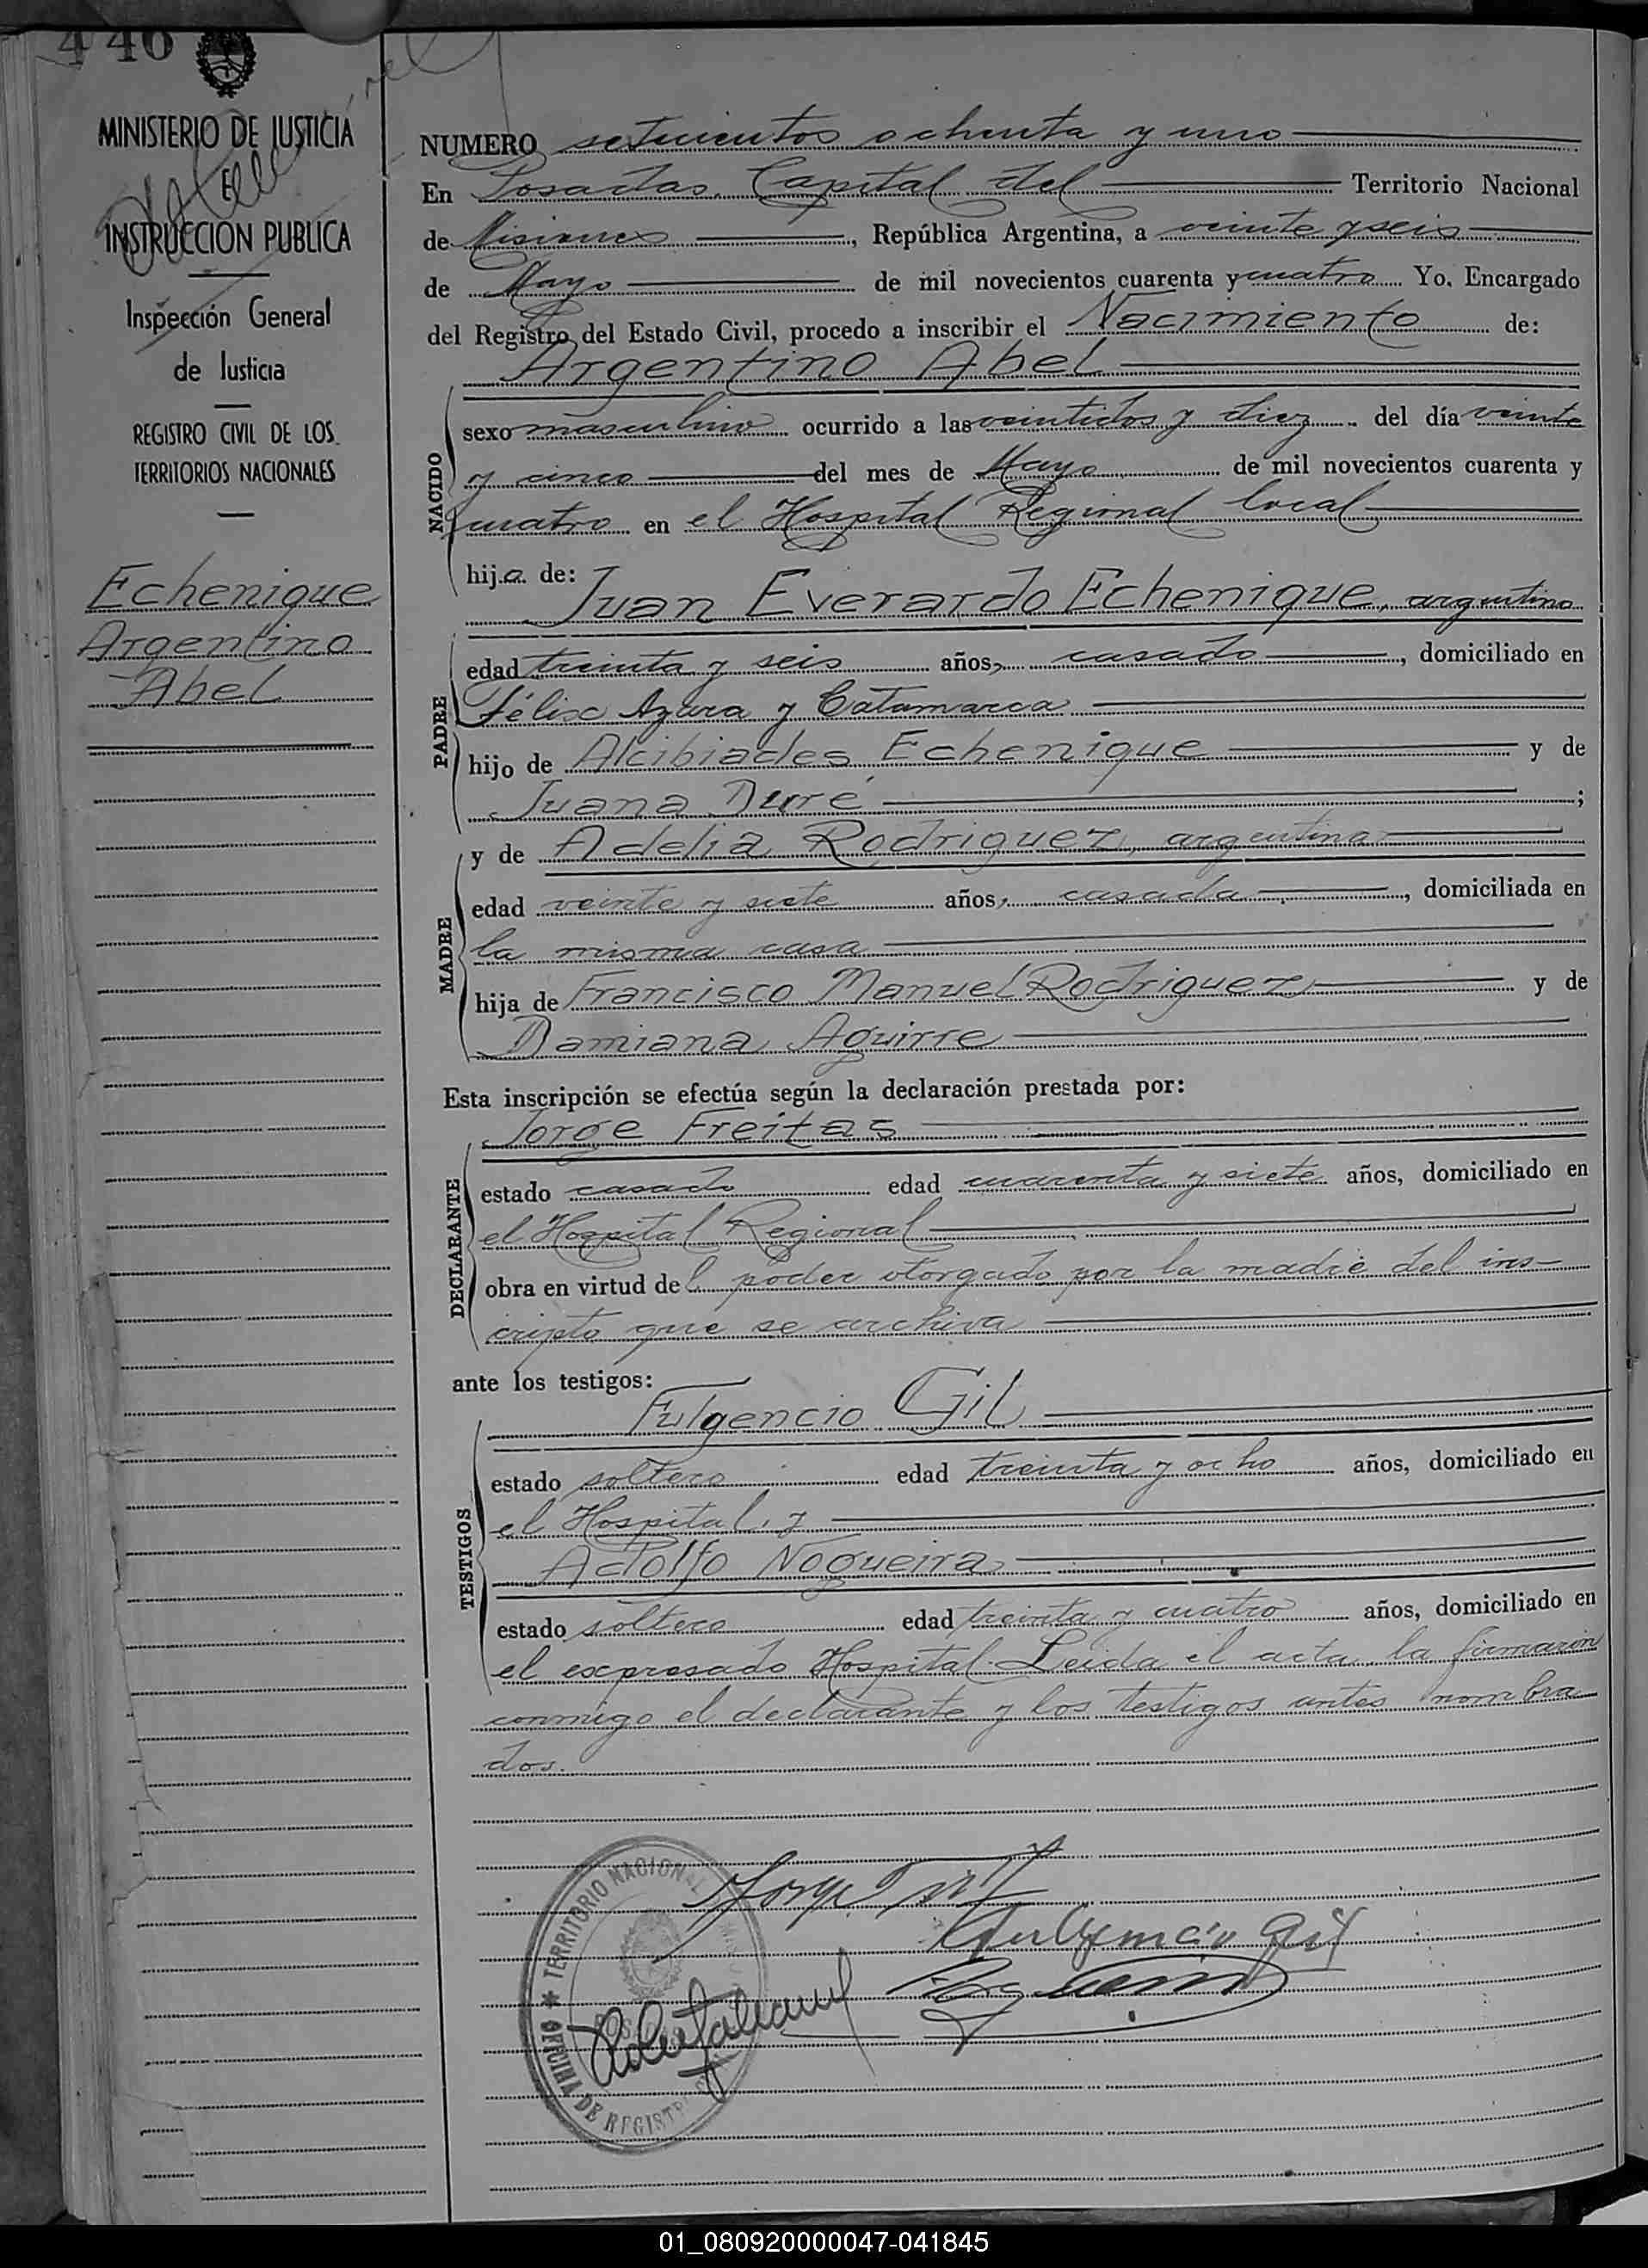 446
MINISTERIO DE JUSTICIA
E
INSTRUCCION PUBLICA
Inspección General
de Justicia
REGISTRO CIVIL DE LOS
TERRITORIOS NACIONALES
Echenique
Argentino
Abel
NUMERO setecientos ochenta y uno
En Posadas, Capital del Territorio Nacional
de Misiones, República Argentina, a veinte y seis
de Mayo de mil novecientos cuarenta y cuatro Yo, Encargado
del Registro del Estado Civil, procedo a inscribir el Nacimiento de:
Argentino Abel
NACIDO
sexo masculino ocurrido a las veintidos y diez del día veinte
y cinco del mes de Mayo de mil novecientos cuarenta y
cuatro en el Hospital Regional local
hijo de:
Juan Everardo Echenique, argentino
PADRE
edad treinta y seis años, casado, domiciliado en
Félix Azara y Catamarca
hijo de Alcibiades Echenique y de
Juana Duré;
y de Adelia Rodriguez, argentina
MADRE
edad veinte y siete años, casada, domiciliada en
la misma casa
hija de Francisco Manuel Rodriguez y de
Damiana Aguirre
Esta inscripción se efectúa según la declaración prestada por:
Jorge Freitas
DECLARANTE
estado casado edad cuarenta y siete años, domiciliado en
el Hospital Regional
obra en virtud del poder otorgado por la madre del ins-
cripto que se archiva
ante los testigos:
Fulgencio Gil
TESTIGOS
estado soltero edad treinta y ocho años, domiciliado en
el Hospital, y
Adolfo Nogueira
estado soltero edad treinta y cuatro años, domiciliado en
el expresado Hospital. Leida el acta, la firmaron
conmigo el declarante y los testigos antes nombra
dos.
TERRITORIO NACIONAL
OFICINA DE REGISTR
Fulgencio Gil
01_080920000047-041845